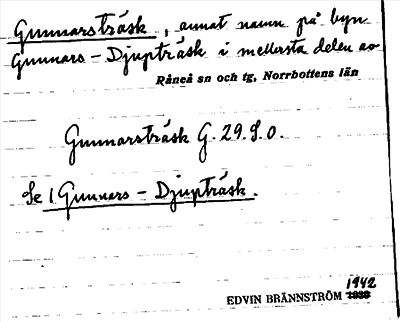 Gunnarsträsk, annat namn på byn
Gunnars-Djupträsk i mellersta delen av
Råneå sn och tg, Norrbottens län
Gunnarsträsk G. 29. S. O.
Se 1 Gunnars-Djupträsk.
1942
EDVIN BRÄNNSTRÖM 1938